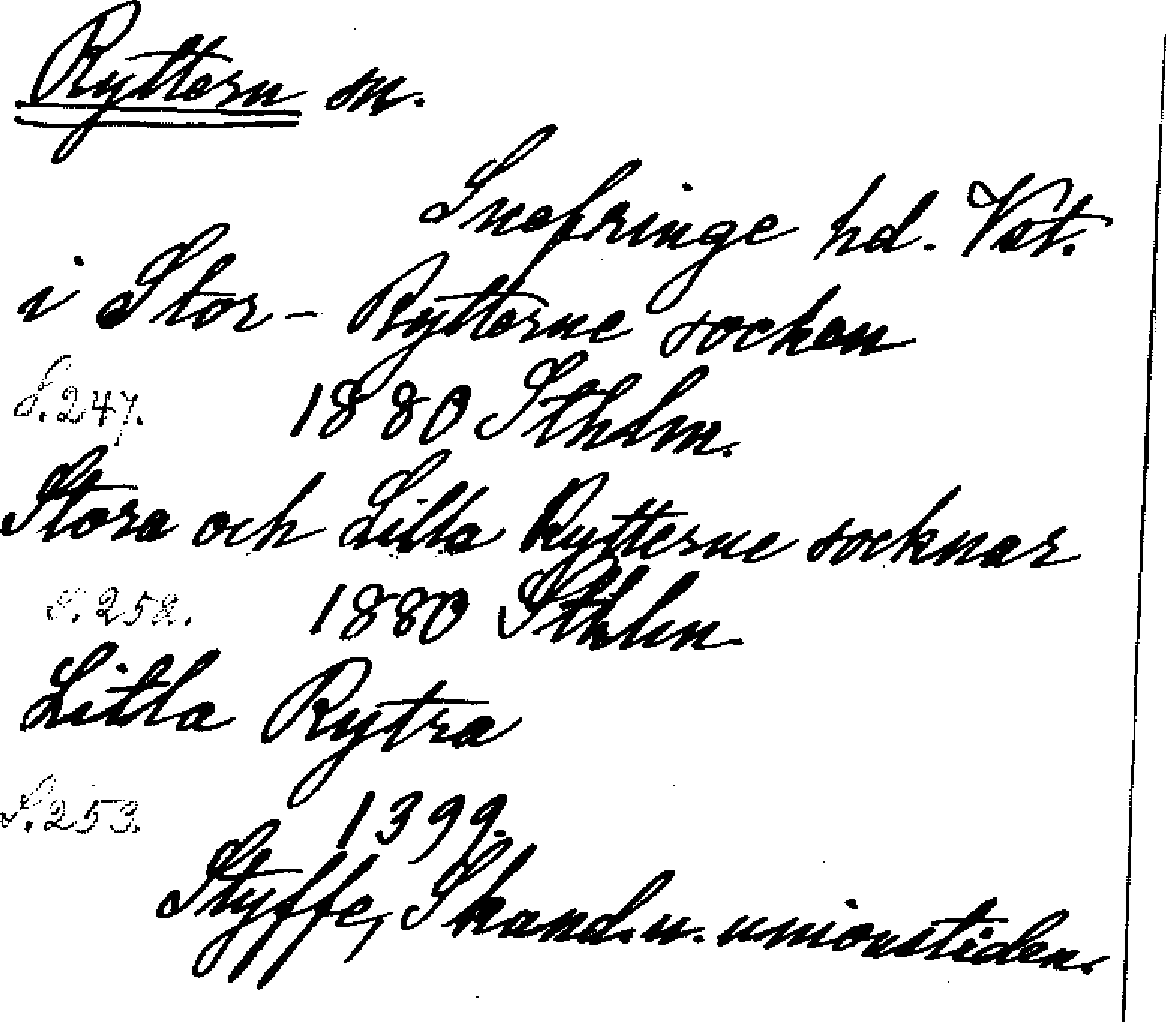 Ryttern sn.
Snefringe hd. Vst.
i Stor-Rytterne socken
S.247. 1880 Sthlm.
Stora och Lilla Rytterne socknar
S.252. 1880 Sthlm
Litla Rytra
S.253. 1399.
Styffe, Skand. u. unionstiden.